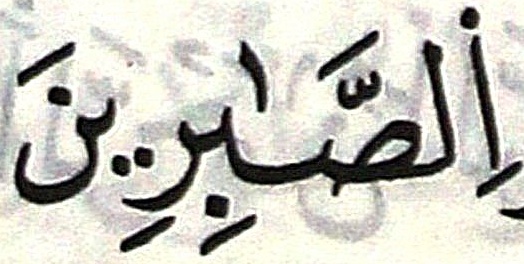 اِ۬لصَّٰبِرِينَ